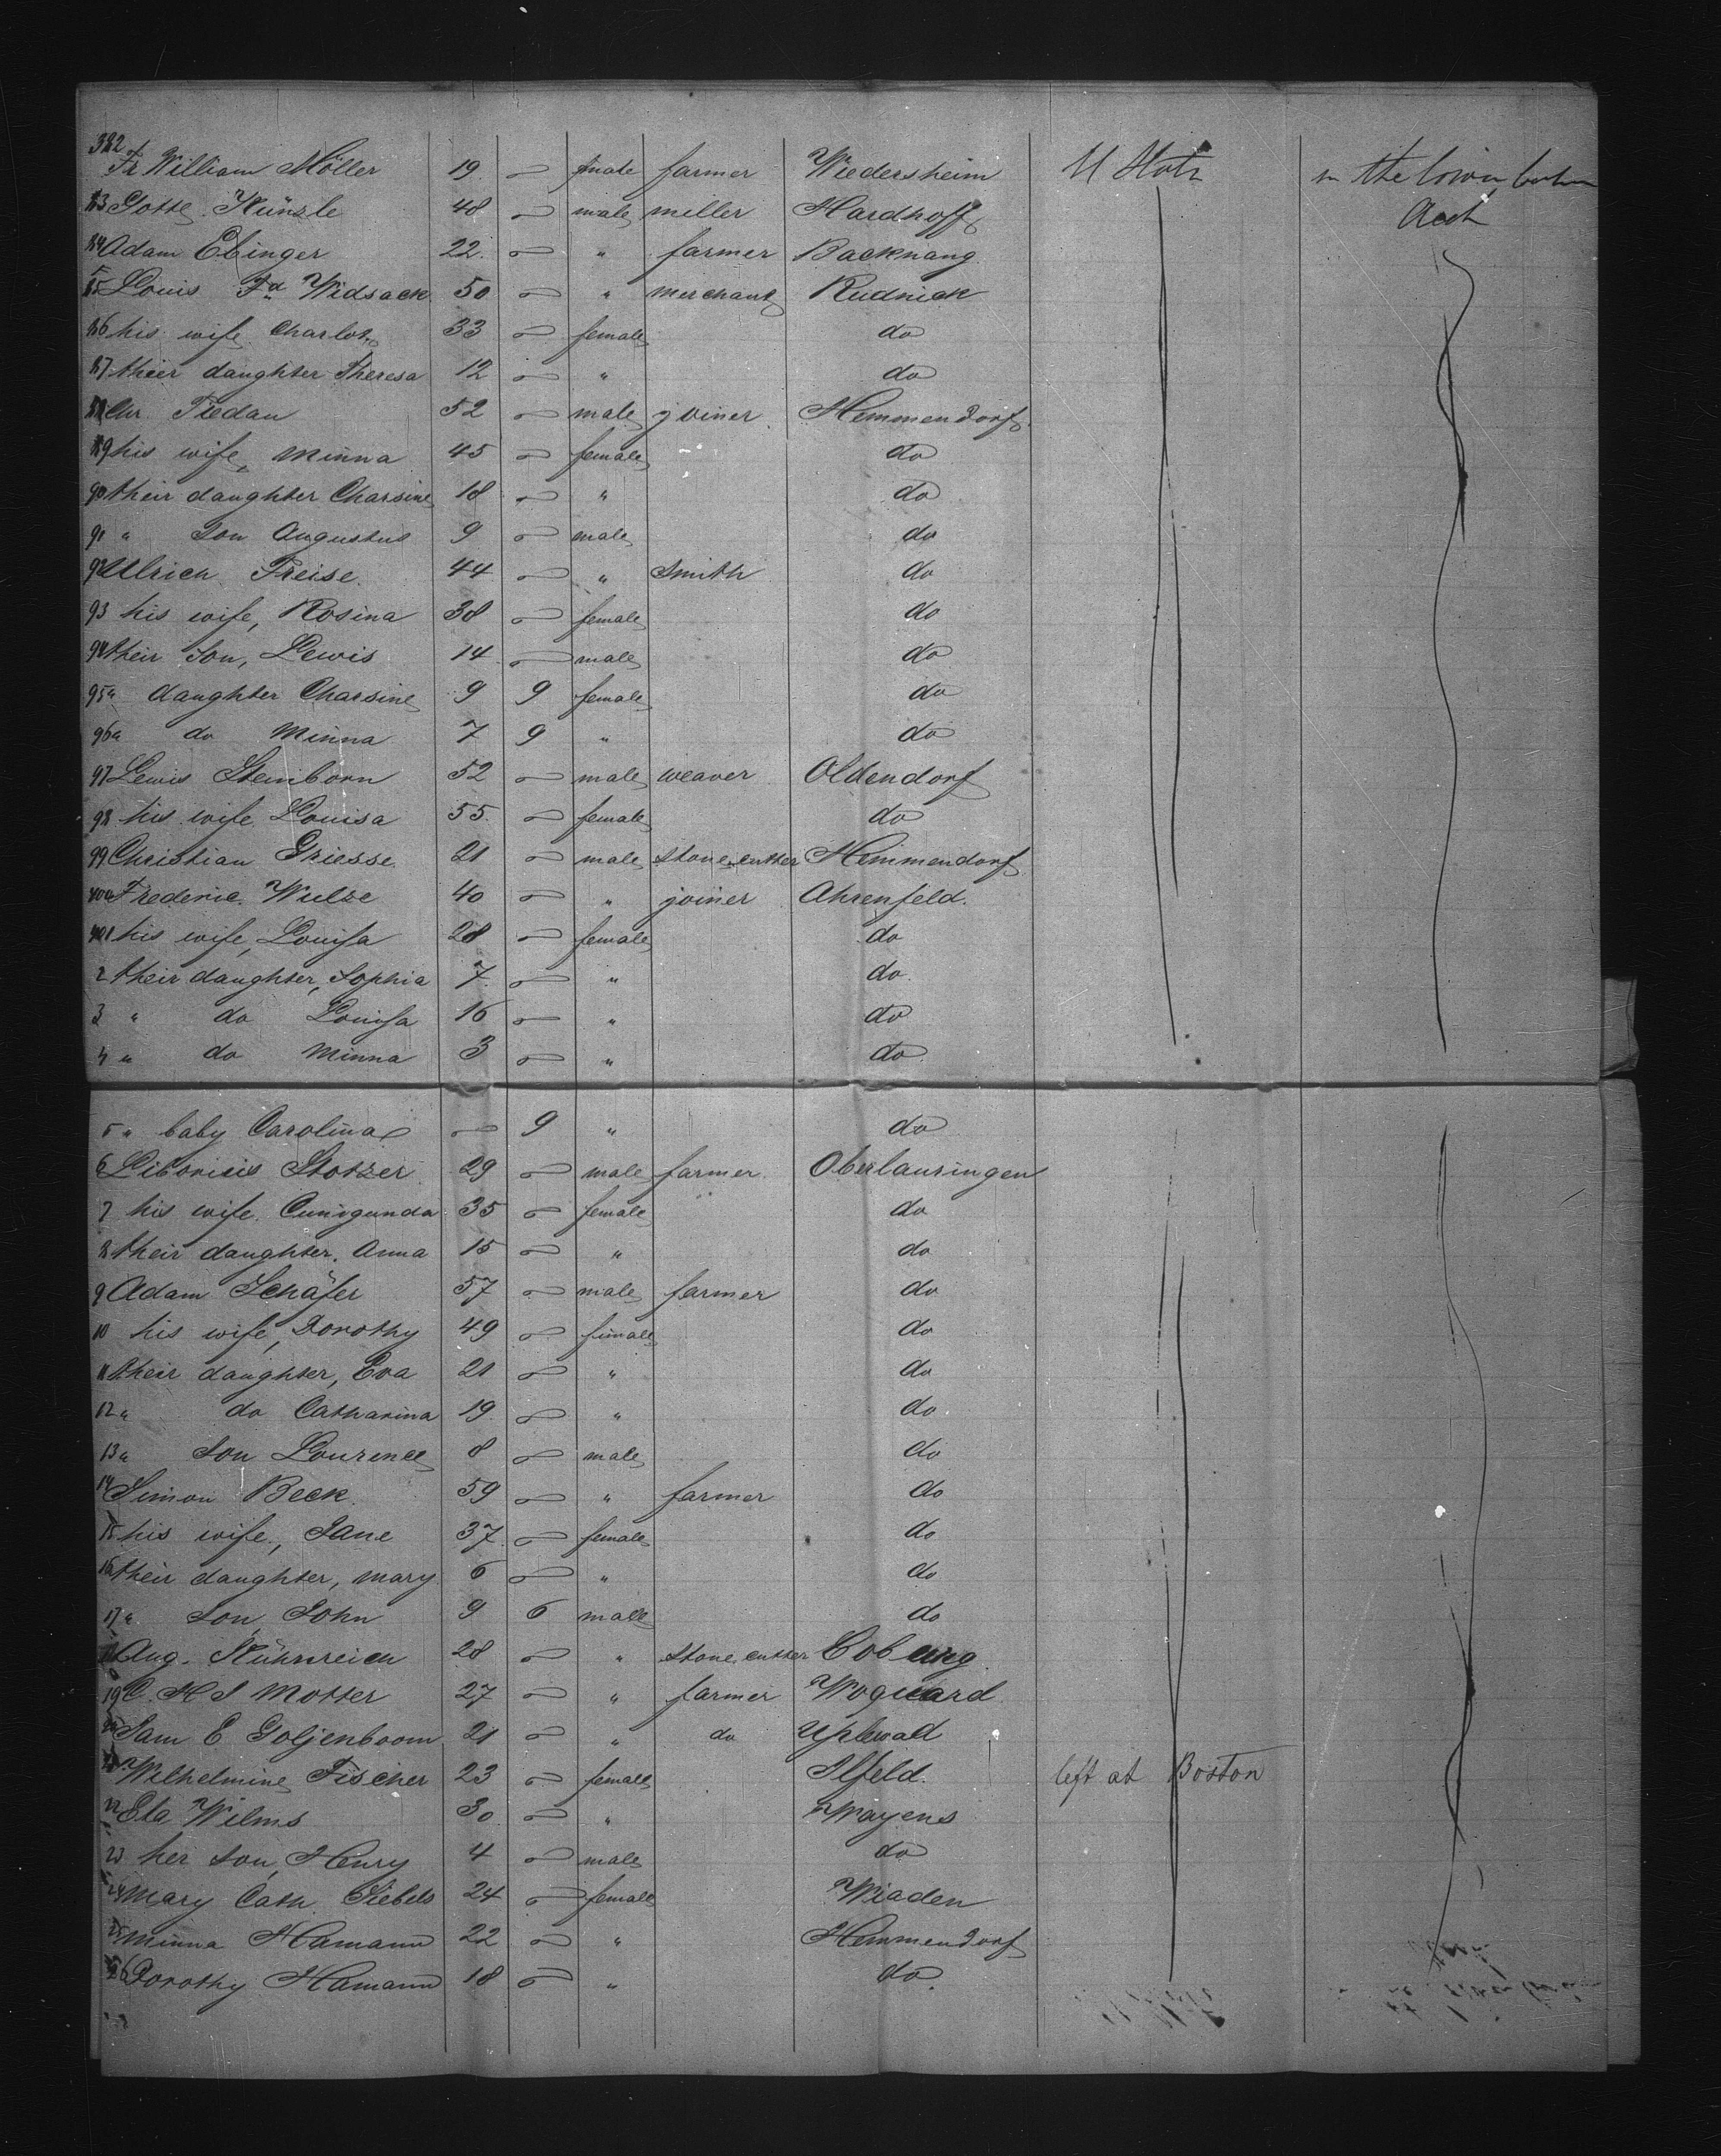 382 Fr William Möller 19 — male farmer Wiedersheim U Stats in the lower between
83 Gottl. Künzle 48 — male miller Hardhoff deck
84 Adam Ebinger 22 — " farmer Backnang
85 Louis Fd Widsack 50 — " merchant Rudnick
86 his wife Charlott 33 — female do
87 their daughter Theresa 12 — " do
88 Chr. Tiedau 52 — male joiner Hemmendorf
89 his wife, Minna 45 — female do
90 their daughter Charsine 18 — " do
91 " son Augustus 9 — male do
92 Ulrich Freise 44 — " Smith do
93 his wife, Rosina 38 — female do
94 their son, Lewis 14 — male do
95 " daughter Charsine 9 9 female do
96 " do Minna 7 9 " do
97 Lewis Steinborn 52 — male weaver Oldendorf
98 his wife Louisa 55 — female do
99 Christian Griesse 21 — male stone cutter Hemmendorf
400 Frederic Wulze 40 — " joiner Ahrenfeld
401 his wife, Louisa 28 — female do
2 their daughter, Sophia 7 — " do
3 " do Louisa 16 — " do
4 " do Minna 3 — " do
5 " baby Carolina — 9 " do
6 Liborius Stotzer 29 — male farmer Oberlauringen
7 his wife Cunigunda 35 — female do
8 their daughter. Anna 15 — " do
9 Adam Schäfer 57 — male farmer do
10 his wife, Dorothy 49 — female do
11 their daughter, Eva 21 — " do
12 " do Catharina 19 — " do
13 " son Lourence 8 — male do
14 Simon Beck 59 — " farmer do
15 his wife, Jane 37 — female do
16 their daughter, Mary 6 — " do
17 " son John 9 6 male do
18 Aug. Kühnreich 28 — " stone cutter Coburg
19 C. H S Motter 27 — " farmer Woquard
20 Sam E Goljenboom 21 — " do Uplewald
21 Wilhelmine Fischer 23 — female Ilfeld left at Boston
22 Eta Wilms 30 — " Wayens
23 her son, Henry 4 — male do
24 Mary Cath. Siebels 24 — female Wiaden
25 Minna Hamann 22 — " Hemmendorf
26 Dorothy Hamann 18 — " do